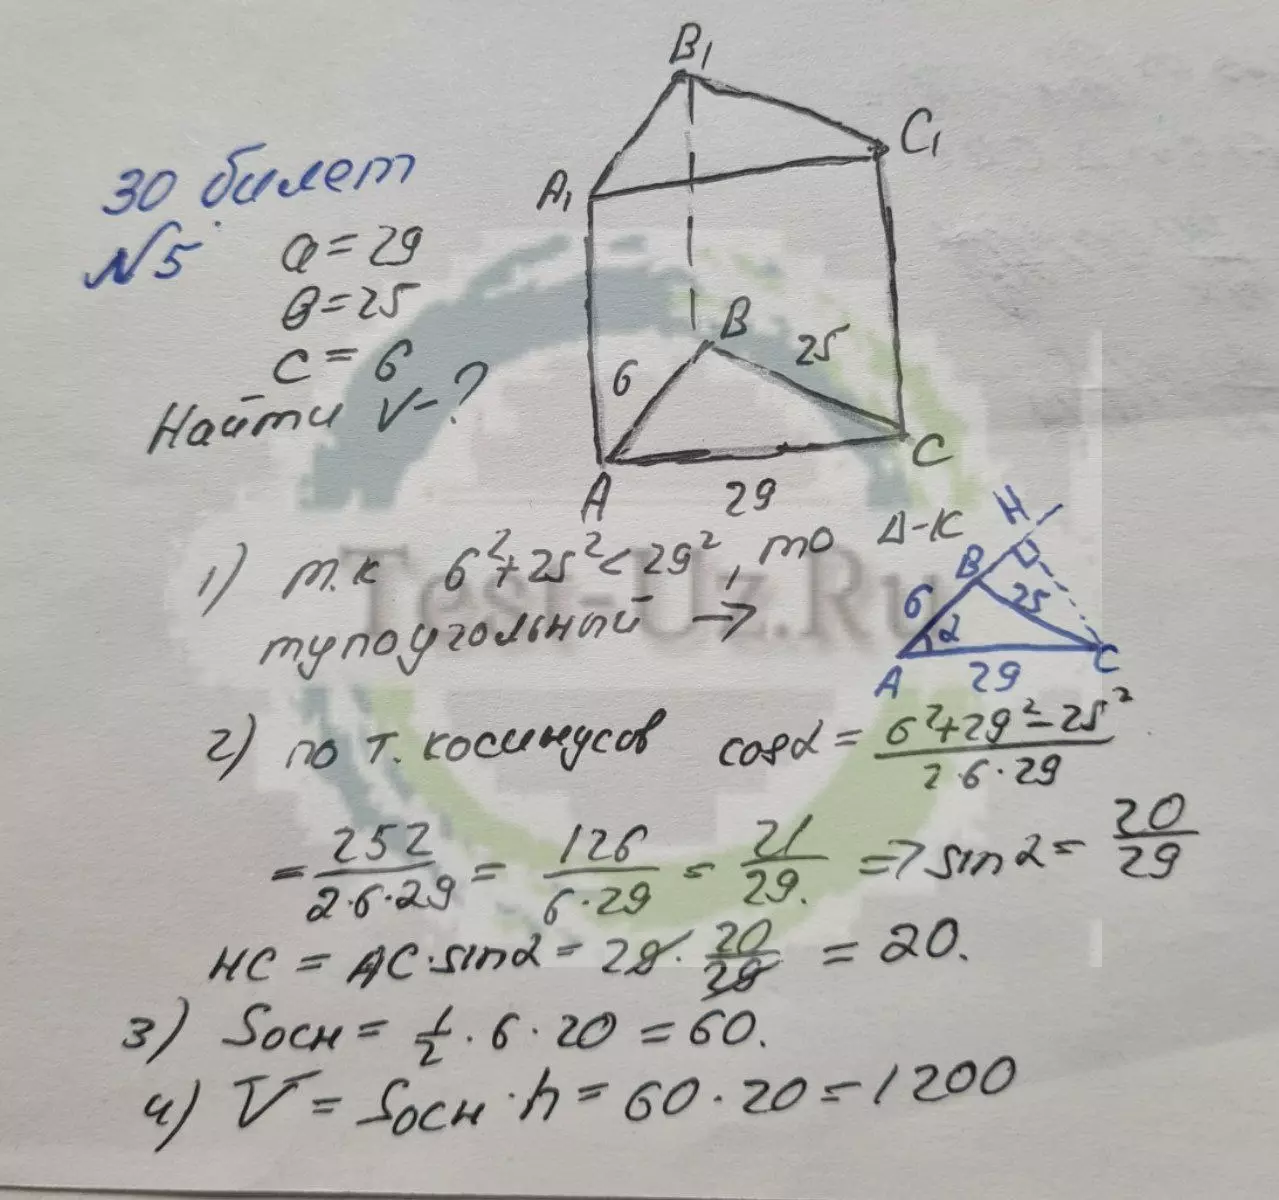 30 билет
№5
a = 29
в = 25
c = 6
Найти V-?
B₁
C₁
A₁
B
6
25
A
29
C
1) т.к 6² + 25² < 29², то Δ-к
тупоугольный →
H
B
6
25
α
A
29
C
2) по т. косинусов cosα = (6²+29²-25²)/(2·6·29)
= 252/(2·6·29) = 126/(6·29) = 21/29. => sinα = 20/29
HC = AC·sinα = 29·20/29 = 20.
3) Sосн = 1/2 · 6 · 20 = 60.
4) V = Sосн · h = 60 · 20 = 1200
Test-Uz.Ru